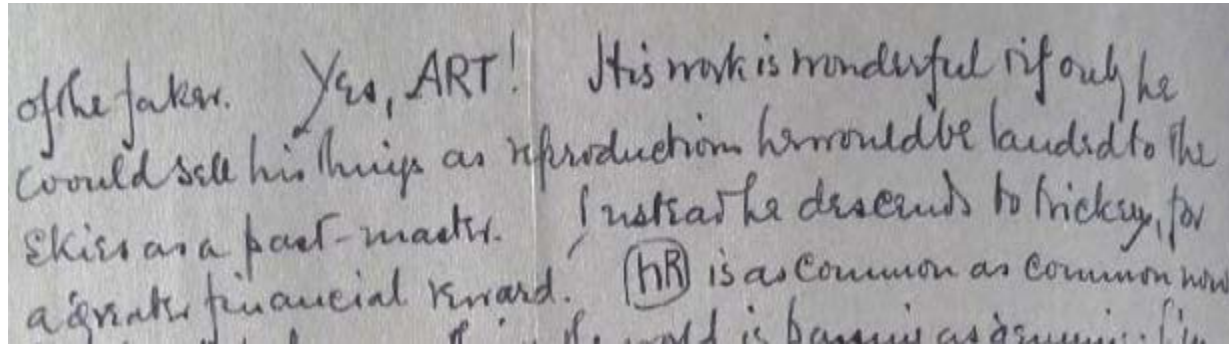 of the faker. Yes, ART! His work is wonderful & if only he
would sell his things as reproductions he would be lauded to the
skies as a past-master. Instead he descends to trickery, for
a greater financial reward. hR is as common as common now
the world is passing as genuine.